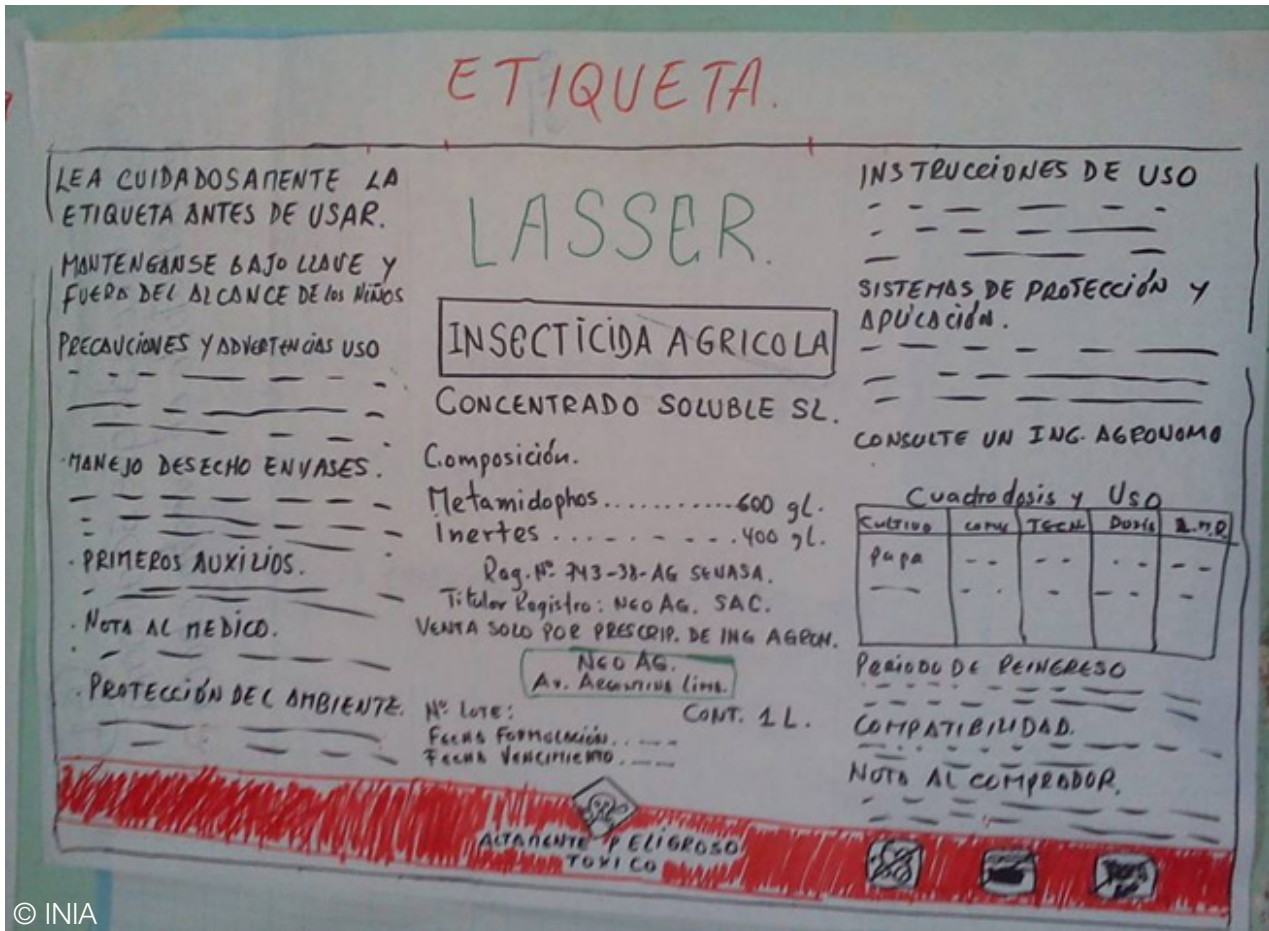 ETIQUETA.
LEA CUIDADOSAMENTE LA
ETIQUETA ANTES DE USAR.
MANTENGANSE BAJO LLAVE Y
FUERA DEL ALCANCE DE los NIÑOS
PRECAUCIONES Y ADVERTENCIAS USO
·MANEJO DESECHO ENVASES.
·PRIMEROS AUXILIOS.
·NOTA AL MEDICO.
·PROTECCIÓN DEL AMBIENTE.
LASSER.
INSECTICIDA AGRICOLA
CONCENTRADO SOLUBLE SL.
Composición.
Metamidophos...........600 gl.
Inertes.........400 gl.
Reg. Nº 743-38-AG SENASA.
Titular Registro: NEO AG. SAC.
VENTA SOLO POR PRESCRIP. DE ING AGRON.
NEO AG.
Av. ARGENTINA Lima.
Nº lote:
CONT. 1 L.
FECHA FORMULACIÓN.....
FECHA VENCIMIENTO.....
INSTRUCCIONES DE USO
SISTEMAS DE PROTECCIÓN Y
APLICACIÓN.
CONSULTE UN ING. AGRONOMO
Cuadro dosis y Uso
Cultivo
Dosis
papa
PERIODO DE REINGRESO
COMPATIBILIDAD.
NOTA AL COMPRADOR.
ALTAMENTE PELIGROSO
TOXICO
© INIA